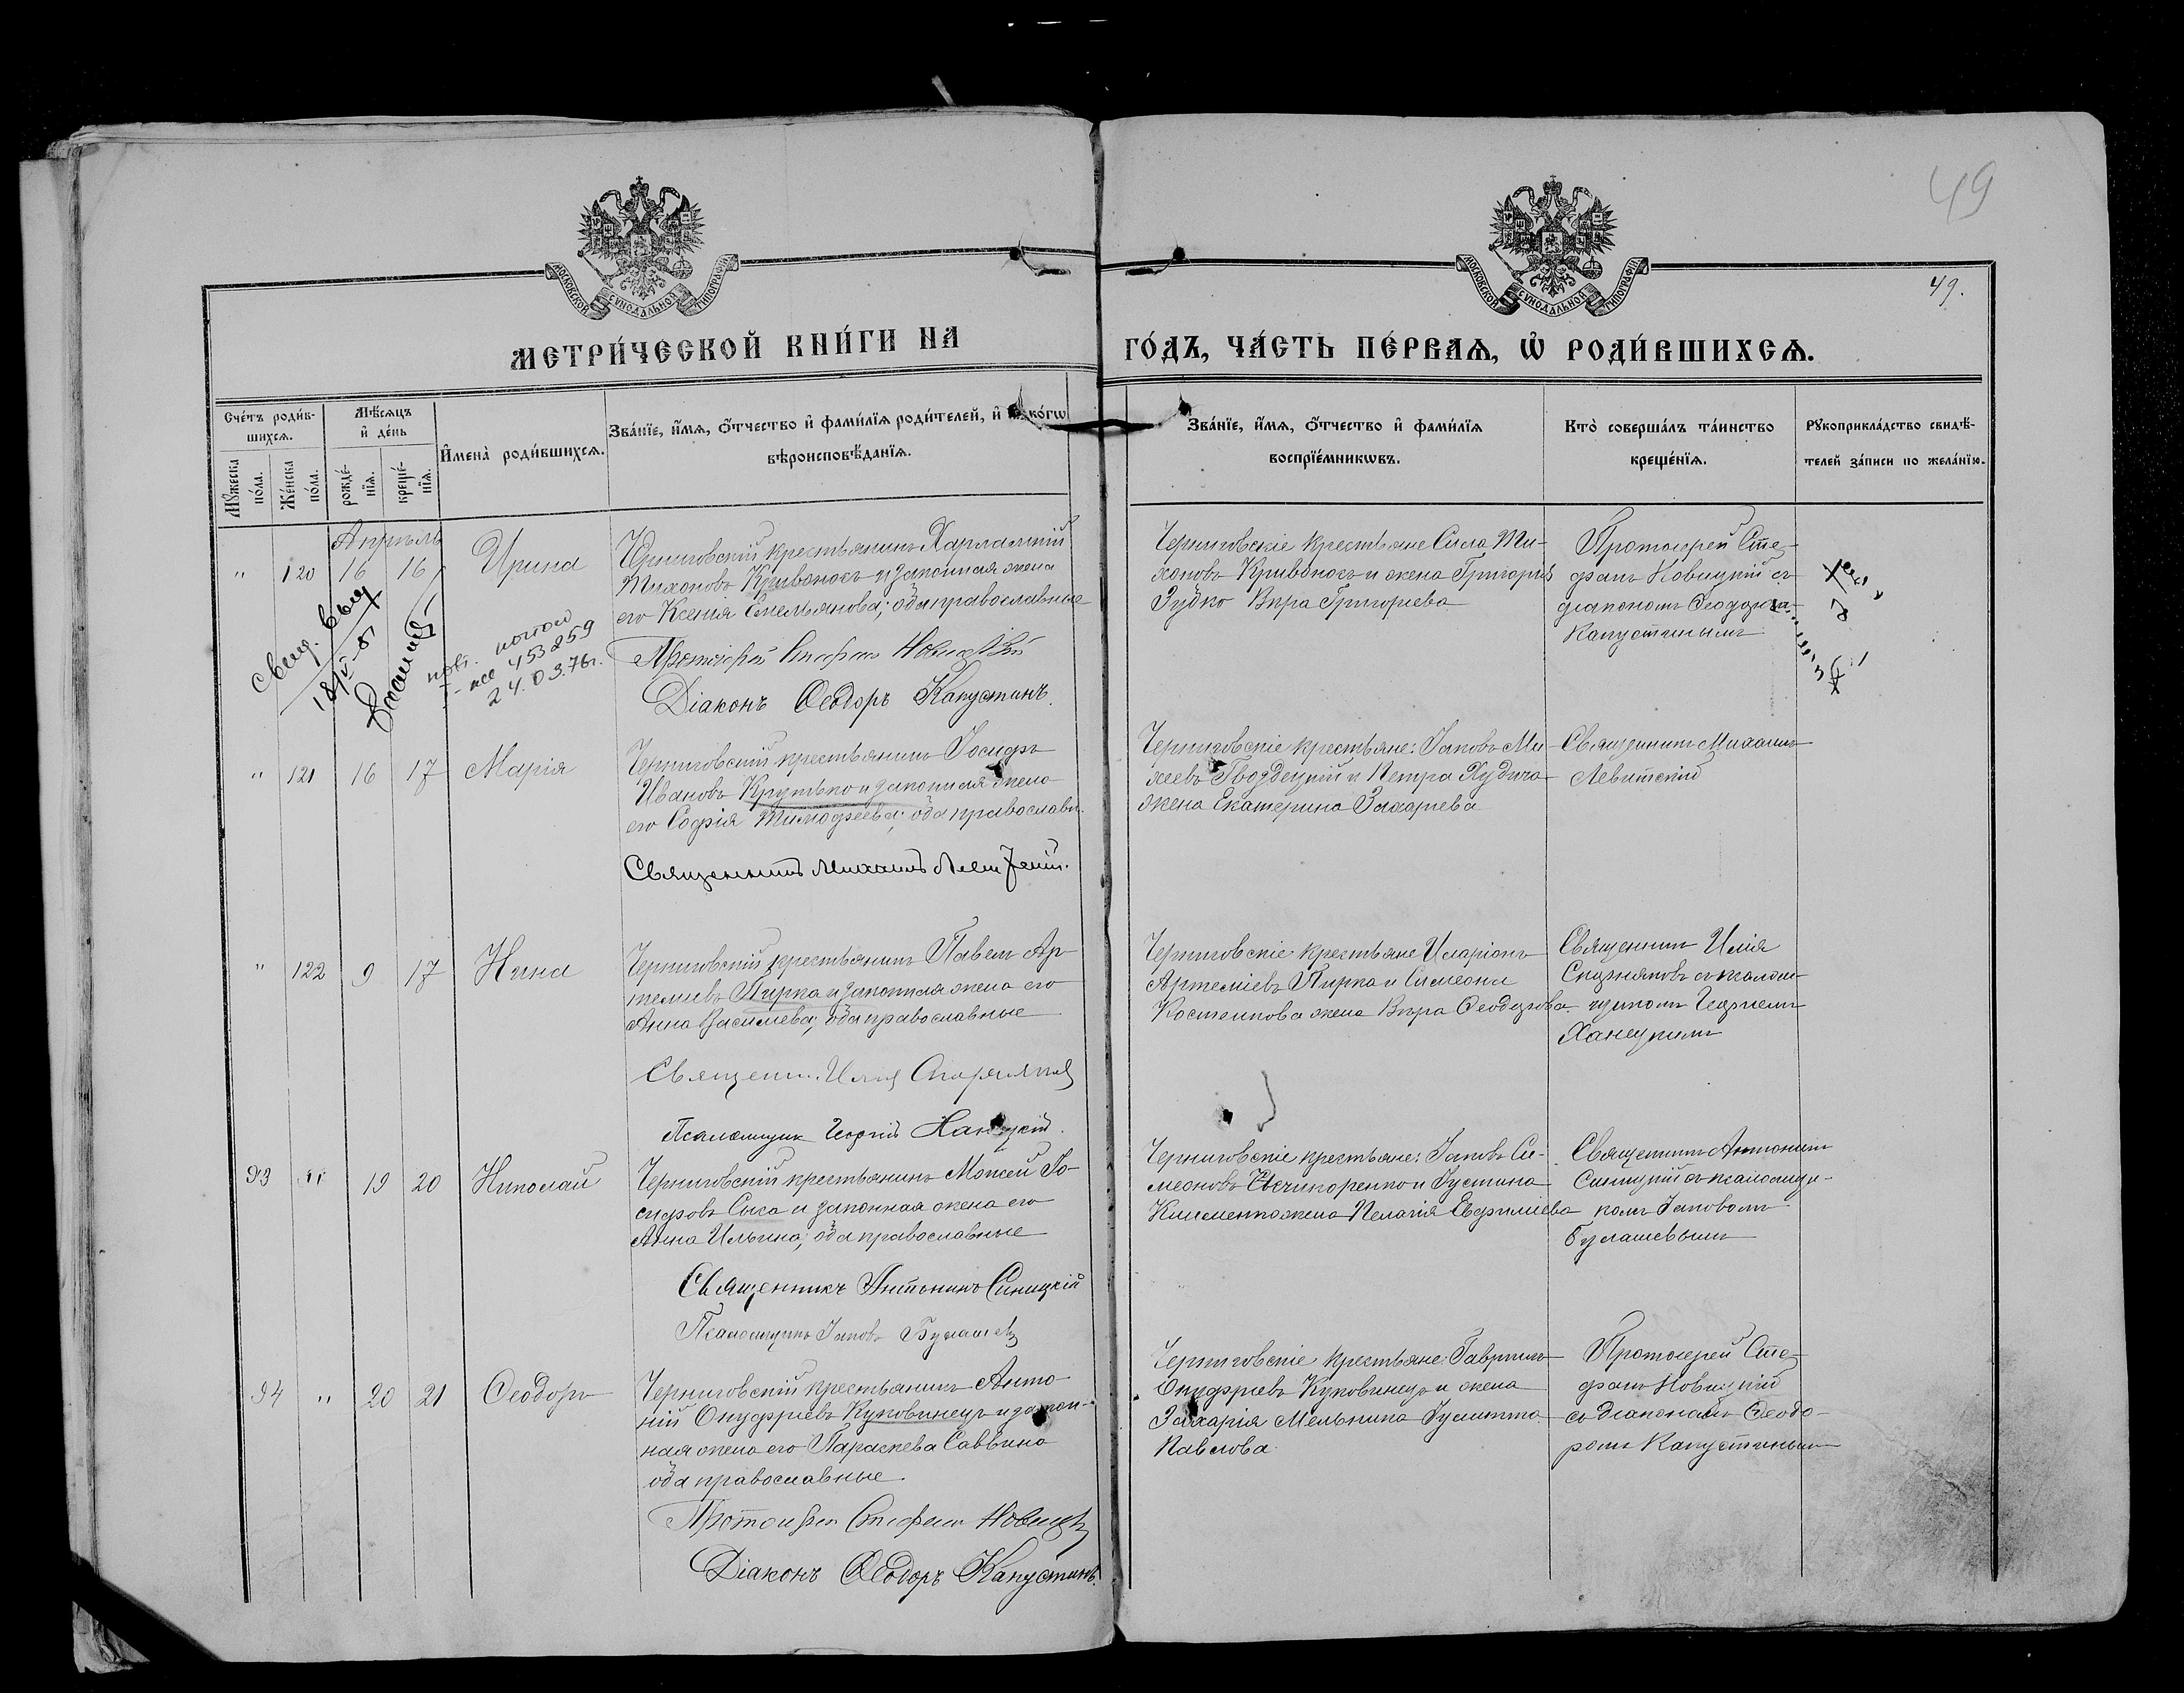 49
49.
МОСКОВСКОЙ СѴНОДАЛЬНОЙ ТИПОГРАФІИ
МОСКОВСКОЙ СѴНОДАЛЬНОЙ ТИПОГРАФІИ
МЕТРИ́ЧЕСКОЙ КНИ́ГИ НА
ГО́ДЪ, ЧА́СТЬ ПЕ́РВАѦ, Ѡ҆ РОДИ́ВШИХСѦ.
Сче́тъ роди́в-
шихсѧ.
Мꙋ́жеска по́ла.
Же́нска по́ла.
Мѣ́сѧцъ
и҆ де́нь
рожде́-
нїѧ.
креще́-
нїѧ.
И҆мена̀ роди́вшихсѧ.
Зва́нїе, и҆́мѧ, ѻ҆́тчество и҆ фами́лїѧ роди́телей, и҆ ко́гѡ
вѣроисповѣ́данїѧ.
Зва́нїе, и҆́мѧ, ѻ҆́тчество и҆ фами́лїѧ
воспрїе́мникѡвъ.
Кто̀ соверша́лъ та́инство
креще́нїѧ.
Рꙋкоприкла́дство свидѣ́-
телей за́писи по жела́нїю.
Апрѣль
" 120 16 16 Ирина
Черниговскій крестьянинъ Харлампій
Тихоновъ Кривоносъ и законная жена
его Ксенія Емельянова; оба православные
Протоіерей Стефан Новицкій
Діаконъ Ѳеодоръ Капустинъ.
Черниговскіе крестьяне Сила Ти-
хоновъ Кривоносъ и жена Григорія
Зубко Вѣра Григорьева
Протоіерей Сте-
фанъ Новицкій съ
діакономъ Ѳеодоро
Капустинымъ
свид. выд
18/V-51
453259
24.03.76г.
" 121 16 17 Марія
Черниговскій крестьянинъ Іосифъ
Ивановъ Крутько и законная жена
его Софія Тимофеева; оба православн.
Священникъ Михаилъ Левитскій.
Черниговскіе крестьяне: Іаковъ Ми-
хеевъ Гвоздецкій и Петра Худича
жена Екатерина Захарьева
Священникъ Михаилъ
Левитскій
" 122 9 17 Нина
Черниговскій крестьянинъ Павелъ Ар-
темьевъ Пирка и законная жена его
Анна Васильева; оба православные
Священн. Илія
Псаломщик Георгій Ханецкій.
Черниговскіе крестьяне Иларіонъ
Артеміевъ Пирка и Симеона
Костенкова жена Вѣра Ѳеодорова
Священникъ Илія
съ псалом-
щикомъ Георгіемъ
Ханецкимъ
93 " 19 20 Николай
Черниговскій крестьянинъ Моисей Іо-
сифовъ Сыса и законная жена его
Анна Ильина; оба православные
Священникъ Антонинъ Синицкій
Псаломщикъ Іаковъ Булашев
Черниговскіе крестьяне: Іаковъ Си-
меоновъ и Іустина
Клименко жена Пелагія Евфиміева
Священникъ Антонинъ
Синицкій съ псаломщи-
комъ Іаковомъ
Булашевымъ
94 " 20 21 Ѳеодоръ
Черниговскій крестьянинъ Анто-
ній Онуфріевъ Куковинецъ и закон-
ная жена его Параскева Саввина
оба православные.
Протоіерей Стефан Новицкій
Діаконъ Ѳеодоръ Капустинъ.
Черниговскіе крестьяне: Гавріилъ
Онуфріевъ Куковинецъ и жена
Захарія Мельника Іулитта
Павлова.
Протоіерей Сте-
фанъ Новицкій
съ діакономъ Ѳеодо-
ромъ Капустинымъ